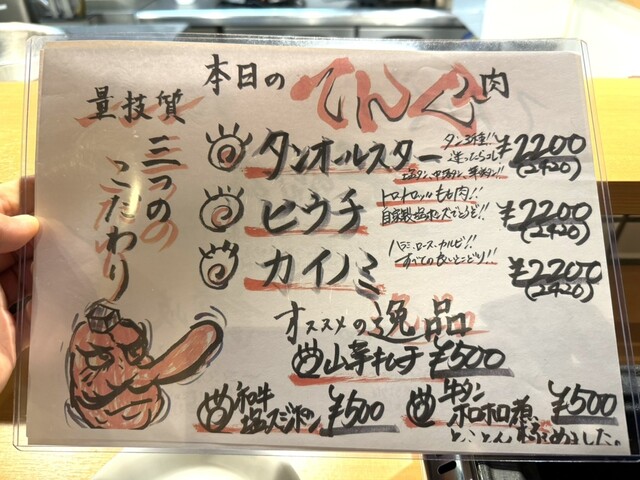 本日のてんぐ肉
質
技
量
三つの
こだわり
タンオールスター
タン3種!!
迷ったらコレ
¥2200
(2420)
ヒウチ
トロットロッもも肉!!
自家製塩ポンズでどうぞ!!
¥2200
(2420)
カイノミ
ハラミ、ロース、カルビ!!
すべての良いとこどり!!
¥2200
(2420)
オススメの逸品
山芋キムチ ¥500
和牛
塩スジポン ¥500
牛タン
ホロホロ煮、
とことん極めました。
¥500